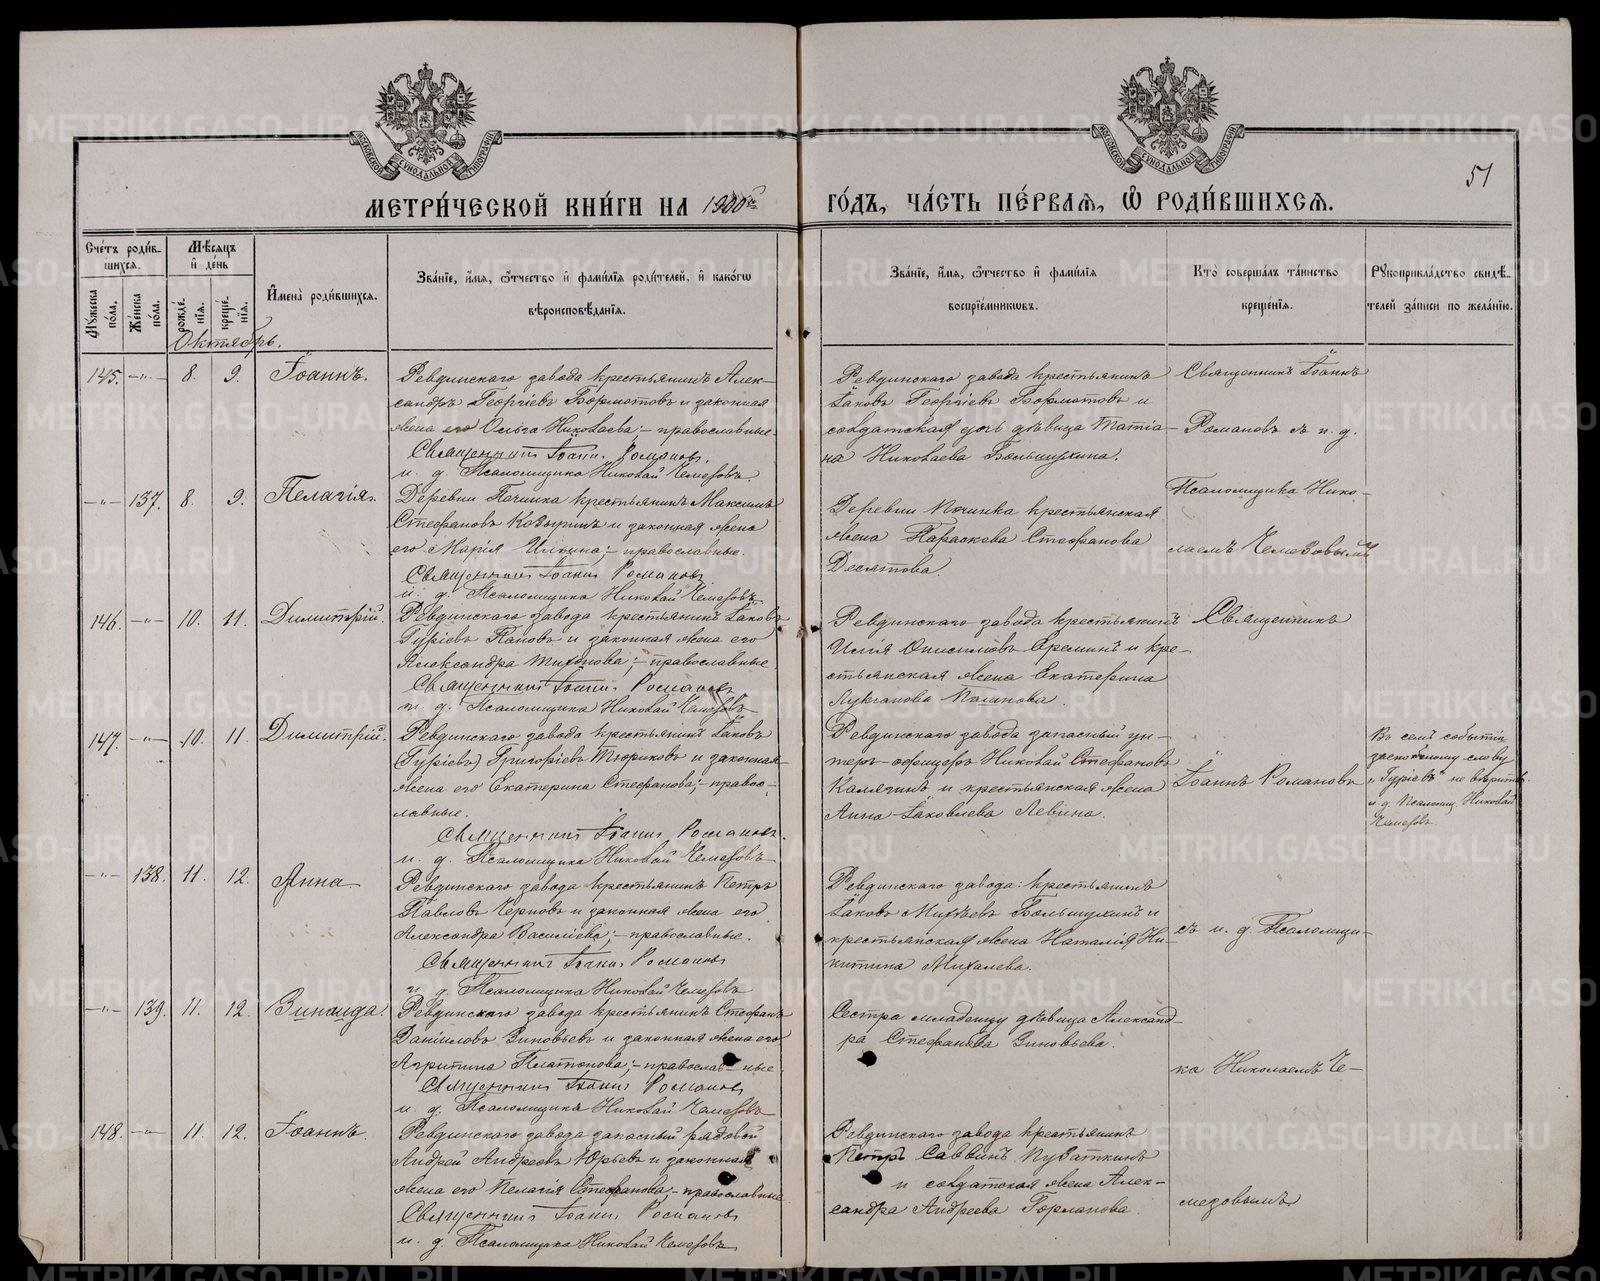 51
МЕТРИ́ЧЕСКОЙ КНИ́ГИ НА 1900й ГО́ДЪ, ЧА́СТЬ ПЕ́РВАЯ, Ѿ РОДИ́ВШИХСЯ.
Сче́тъ роди́вшихся.
Му́жеска по́ла.
Же́нска по́ла.
Мѣ́сяцъ и де́нь
рожде́нія.
креще́нія.
И́мена̀ роди́вшихся.
Зва́ніе, и́мя, о́тчество и фами́лія роди́телей, и како́гѡ вѣроисповѣ́данія.
Зва́ніе, и́мя, о́тчество и фами́лія воспріе́мникѡвъ.
Кто̀ соверша́лъ та́инство креще́нія.
Рукоприкла́дство свидѣ́телей за́писи по жела́нію.
Октябрь.
145. —"— 8. 9. Іоаннъ.
Ревдинскаго завода крестьянинъ Алек-
сандръ Георгіевъ Борматовъ и законная
жена его Ольга Николаева; – православные.
Священникъ Іоаннъ Романовъ.
и. д. Псаломщика Николай Чемезовъ
Ревдинскаго завода крестьянинъ
Іаковъ Георгіевъ Борматовъ и
солдатская дочь дѣвица Татіа-
на Николаева Большухина.
Священникъ Іоаннъ
Романовъ съ и. д.
—"— 137. 8. 9. Пелагія.
Деревни Починка крестьянинъ Максимъ
Стефановъ Козыринъ и законная жена
его Марія Ильина; – православные.
Священникъ Іоаннъ Романовъ
и. д. Псаломщика Николай Чемезовъ
Деревни Починка крестьянская
жена Параскева Стефанова
Десятова.
Псаломщика Нико-
лаемъ Чемезовымъ
146. —"— 10. 11. Димитрій.
Ревдинскаго завода крестьянинъ Іаковъ
Гуріевъ Пановъ и законная жена его
Александра Тихонова; – православные.
Священникъ Іоаннъ Романовъ
и. д. Псаломщика Николай Чемезовъ
Ревдинскаго завода крестьянинъ
Илія Онисимовъ Ереминъ и кре-
стьянская жена Екатерина
Лукіанова
Священникъ
147. —"— 10. 11. Димитрій.
Ревдинскаго завода крестьянинъ Іаковъ
(Гуріевъ) Григоріевъ Тюриковъ и законная
жена его Екатерина Стефанова; – правос-
лавные.
Священникъ Іоаннъ Романовъ.
и. д. Псаломщика Николай Чемезовъ
Ревдинскаго завода запасный ун-
теръ-офицеръ Николай Стефановъ
Калягинъ и крестьянская жена
Анна Іаковлева Левина.
Іоаннъ Романовъ
Въ семъ событіи
слову
„Гуріевъ" не вѣрить.
и. д. Псаломщ. Николай
Чемезовъ
—"— 138. 11. 12. Анна
Ревдинскаго завода крестьянинъ Петръ
Павловъ Черновъ и законная жена его
Александра Василіева; – православные.
Священникъ Іоаннъ Романовъ
и. д. Псаломщика Николай Чемезовъ
Ревдинскаго завода: крестьянинъ
Іаковъ Михѣевъ Большухинъ и
крестьянская жена Наталія Ни-
китина Михалева.
съ и. д. Псаломщи-
—"— 139. 11. 12. Зинаида.
Ревдинскаго завода крестьянинъ Стефанъ
Даніиловъ Зиновьевъ и законная жена его
Агрипина Платонова; – православные.
Священникъ Іоаннъ Романовъ
и. д. Псаломщика Николай Чемезовъ
Сестра младенцу дѣвица Александ-
ра Стефанова Зиновьева.
ка Николаемъ Че-
148. —"— 11. 12. Іоаннъ.
Ревдинскаго завода запасный рядовой
Андрей Андреевъ Юрьевъ и законная
жена его Пелагія Стефанова; – православные
Священникъ Іоаннъ Романовъ
и. д. Псаломщика Николай Чемезовъ
Ревдинскаго завода крестьянинъ
Петръ Саввинъ
и солдатская жена Алек-
сандра Андреева Горланова.
мезовымъ
METRIKI.GASO-URAL.RU